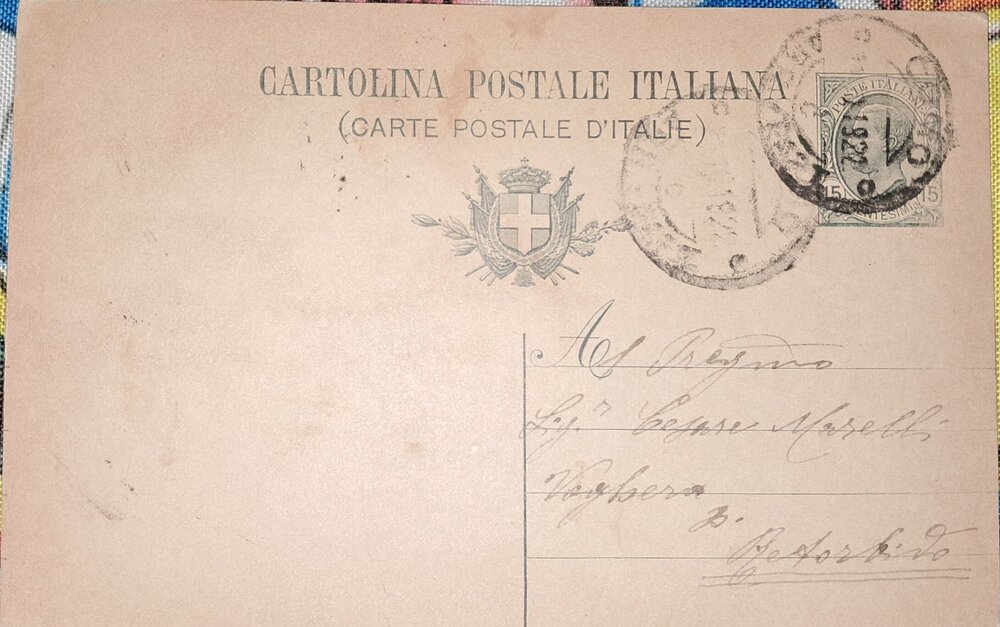 CARTOLINA POSTALE ITALIANA
(CARTE POSTALE D'ITALIE)
POSTE ITALIANE
15 CENTESIMI 15
1922
Al Pregmo
Sig.r Cesare Marelli
Voghera
p. Retorbido